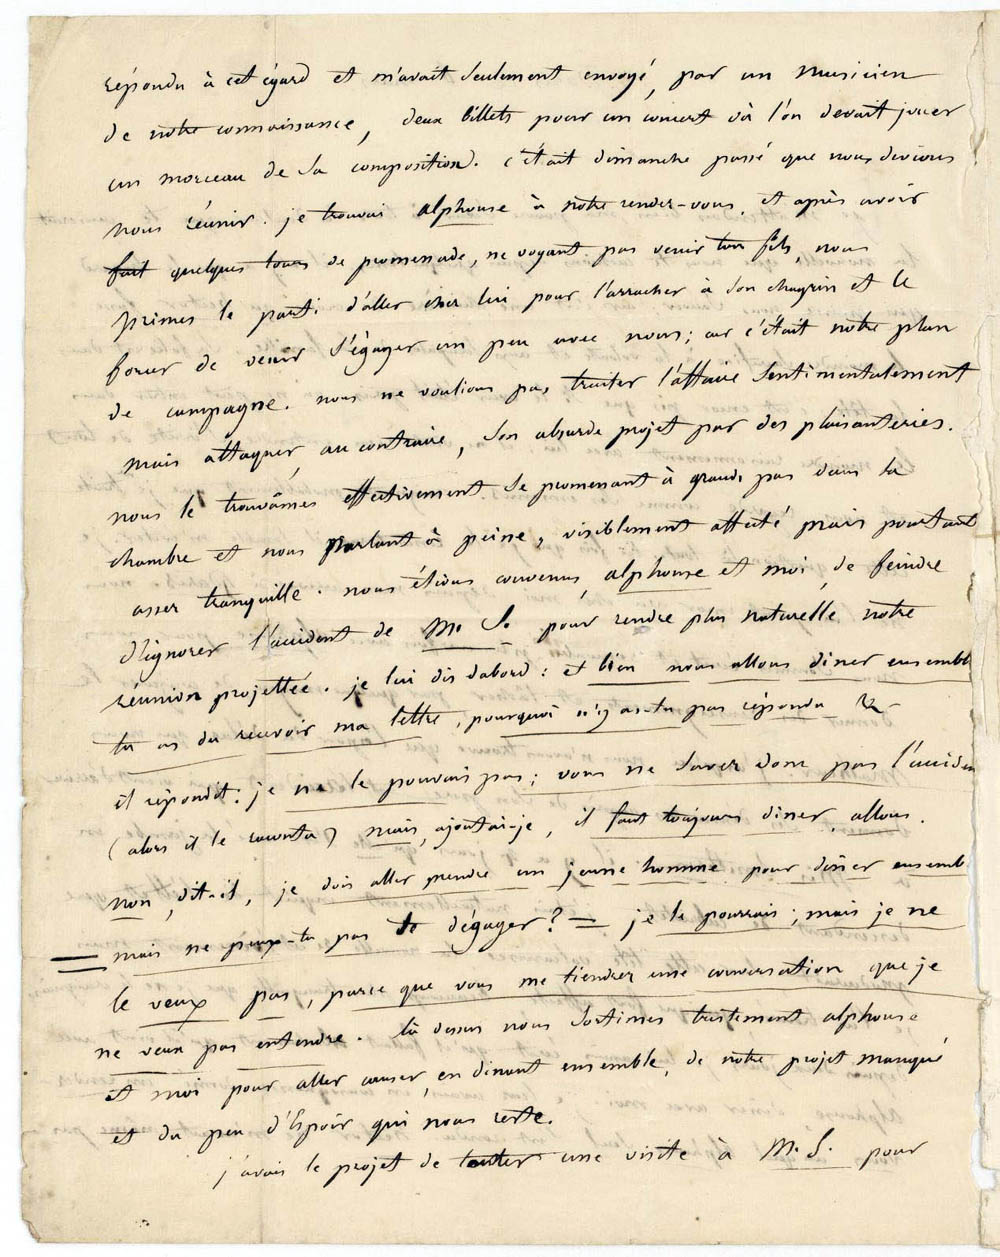 répondu à cet égard et m'avait seulement envoyé, par un musicien
de notre connaissance, deux billets pour un concert où l'on devait jouer
un morceau de sa composition. c'était dimanche passé que nous devions
nous réunir. je trouvai alphonse à notre rendez-vous, et après avoir
fait quelques tours de promenade, ne voyant pas venir ton fils, nous
primes le parti d'aller chez lui pour l'arracher à son chagrin et le
forcer de venir s'égayer un peu avec nous; car c'était notre plan
de campagne. nous ne voulions pas traiter l'affaire sentimentalement
mais attaquer au contraire, son absurde projet par des plaisanteries.
nous le trouvâmes effectivement se promenant à grands pas dans la
chambre et nous parlant à peine, visiblement affecté mais pourtant
assez tranquille. nous étions convenus, alphonse et moi, de feindre
d'ignorer l'accident de M. S. pour rendre plus naturelle notre
réunion projettée. je lui dis dabord: et bien nous allons diner ensembl
tu as du recevoir ma lettre, pourquoi n'y as-tu pas répondu &-
il répondit: je ne le pouvais pas; vous ne savez donc pas l'acciden
(alors il le raconta) mais, ajoutai-je, il faut toujours diner, allons.
non, dit-il, je dois aller prendre un jeune homme pour dîner ensemb
= mais ne peux-tu pas te dégager? = je le pourrais; mais je ne
le veux pas, parce que vous me tiendrez une conversation que je
ne veux pas entendre. là dessus nous sortimes tristement alphonse
et moi pour aller causer, en dinant ensemble, de notre projet manqué
et du peu d'Espoir qui nous reste.
j'avais le projet de tenter une visite à M. S. pour